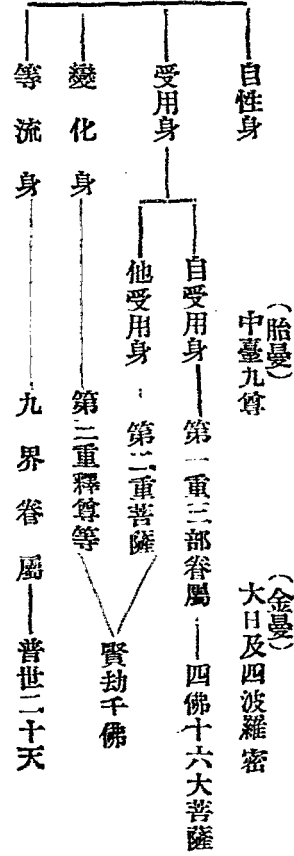 自性身
（胎曼）
中臺九尊
（金曼）
大日及四波羅密
受用身
自受用身
第一重三部眷屬
四佛十六大菩薩
他受用身
第二重菩薩
變化身
第三重釋尊等
賢劫千佛
等流身
九界眷屬
普世二十天